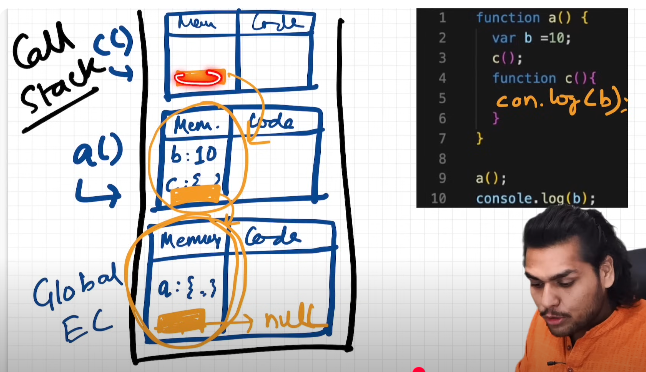 Call
Stack
c()
Mem
Code
a()
Mem.
Code
b:10
c:{ }
Global
EC
Memory
Code
a:{..}
null
1 function a() {
2 var b =10;
3 c();
4 function c(){
5 con.log(b);
6 }
7 }
8
9 a();
10 console.log(b);